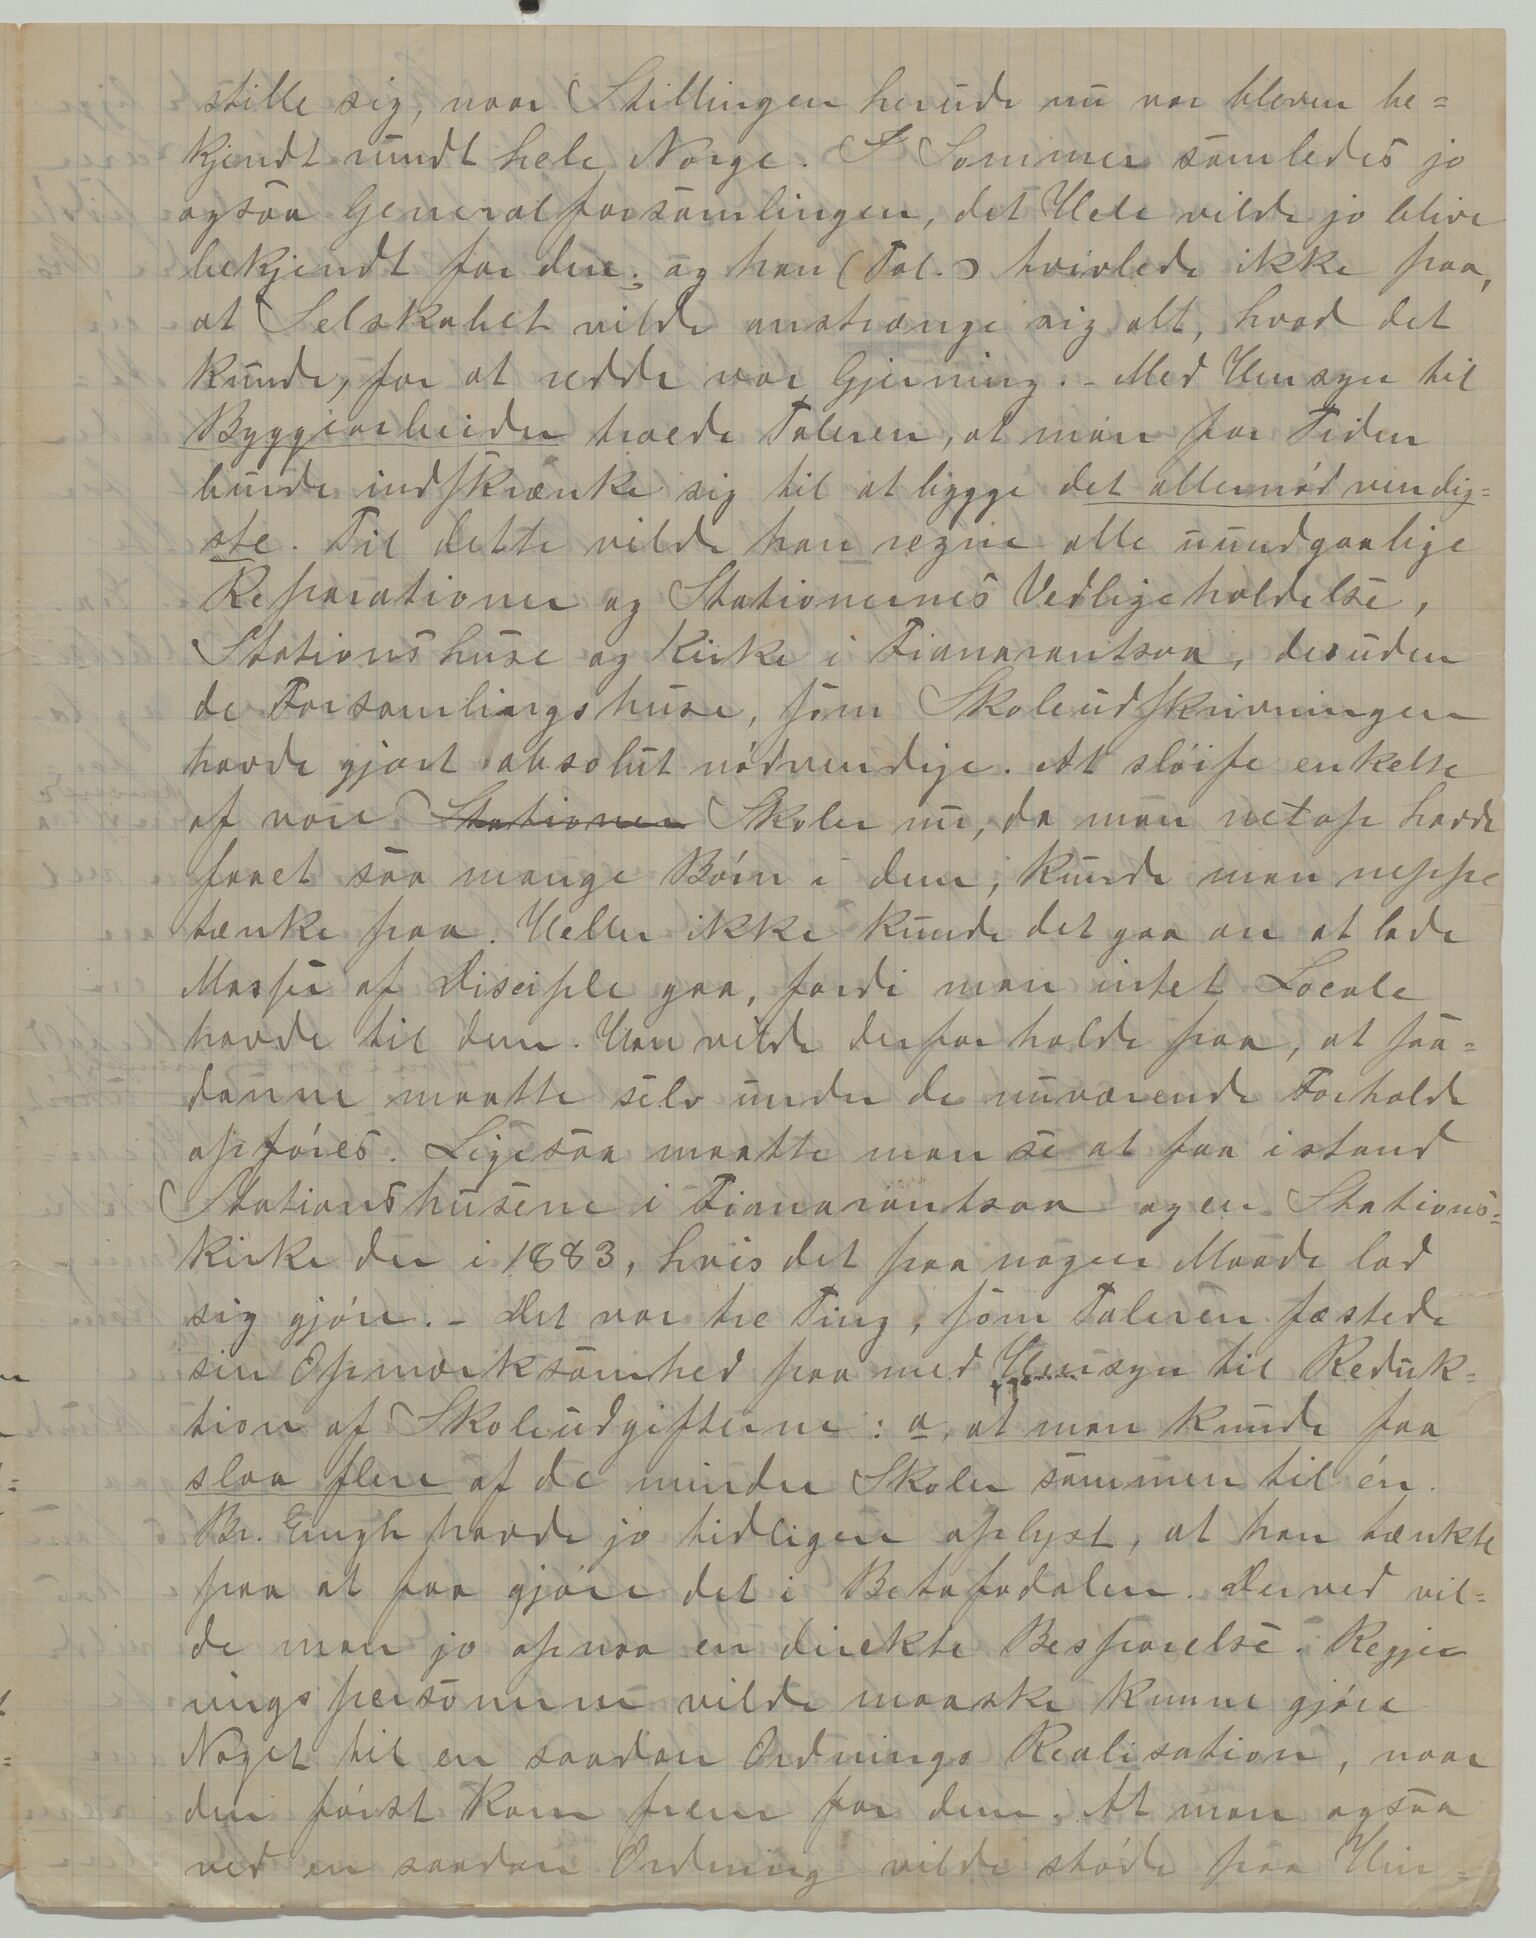 stille sig, naar Stillingen herude nu var bleven be=
kjendt rundt hele Norge. I Sommer samledes jo
ogsaa Generalforsamlingen, det Hele vilde jo blive
bekjendt for den; og han (Tal.) tvivlede ikke paa,
at Selskabet vilde anstrænge sig alt, hvad det
kunde, for at redde vor Gjerning. - Med Hensyn til
Byggearbeider troede Taleren, at man for Tiden
burde indskrænke sig til at bygge det allernødvendig=
ste. Til dette vilde han regne alle uundgaalige
Reparationer og Stationernes Vedligeholdelse,
Stationshuse og Kirke i Fianarantsoa, desuden
de Forsamlingshuse, som Skoleudskrivningen
havde gjort absolut nødvendige. At sløife enkelte
af vore Stationer Skoler nu, da man netop havde
faaet saa mange Børn i dem, kunde man neppe
tænke paa. Heller ikke kunde det gaa an at lade
Masse af Disciple gaa, fordi man intet Locale
havde til dem. Han vilde derfor holde paa, at saa=
danne maatte selv under de nuværende Forholde
opføres. Ligesaa maatte man se at faa istand
Stationshusene i Fianarantsoa og en Stations=
kirke der i 1883, hvis det paa nogen Maade lod
sig gjøre. - Det var tre Ting, som Taleren fæstede
sin Opmærksomhed paa med Hensyn til Reduk=
tion af Skoleudgifterne: a, at man kunde faa
slaa flere af de mindre Skoler sammen til én.
Br. Engh havde jo tidligere oplyst, at han tænkte
paa at faa gjøre det i Betafodalen. Derved vil=
de man jo opnaa en direkte Besparelse. Regje
ringspersonerne vilde maaske kunne gjøre
Noget til en saadan Ordnings Realisation, naar
den først kom frem for dem. At man ogsaa
ved en saadan Ordning vilde støde paa Hin=